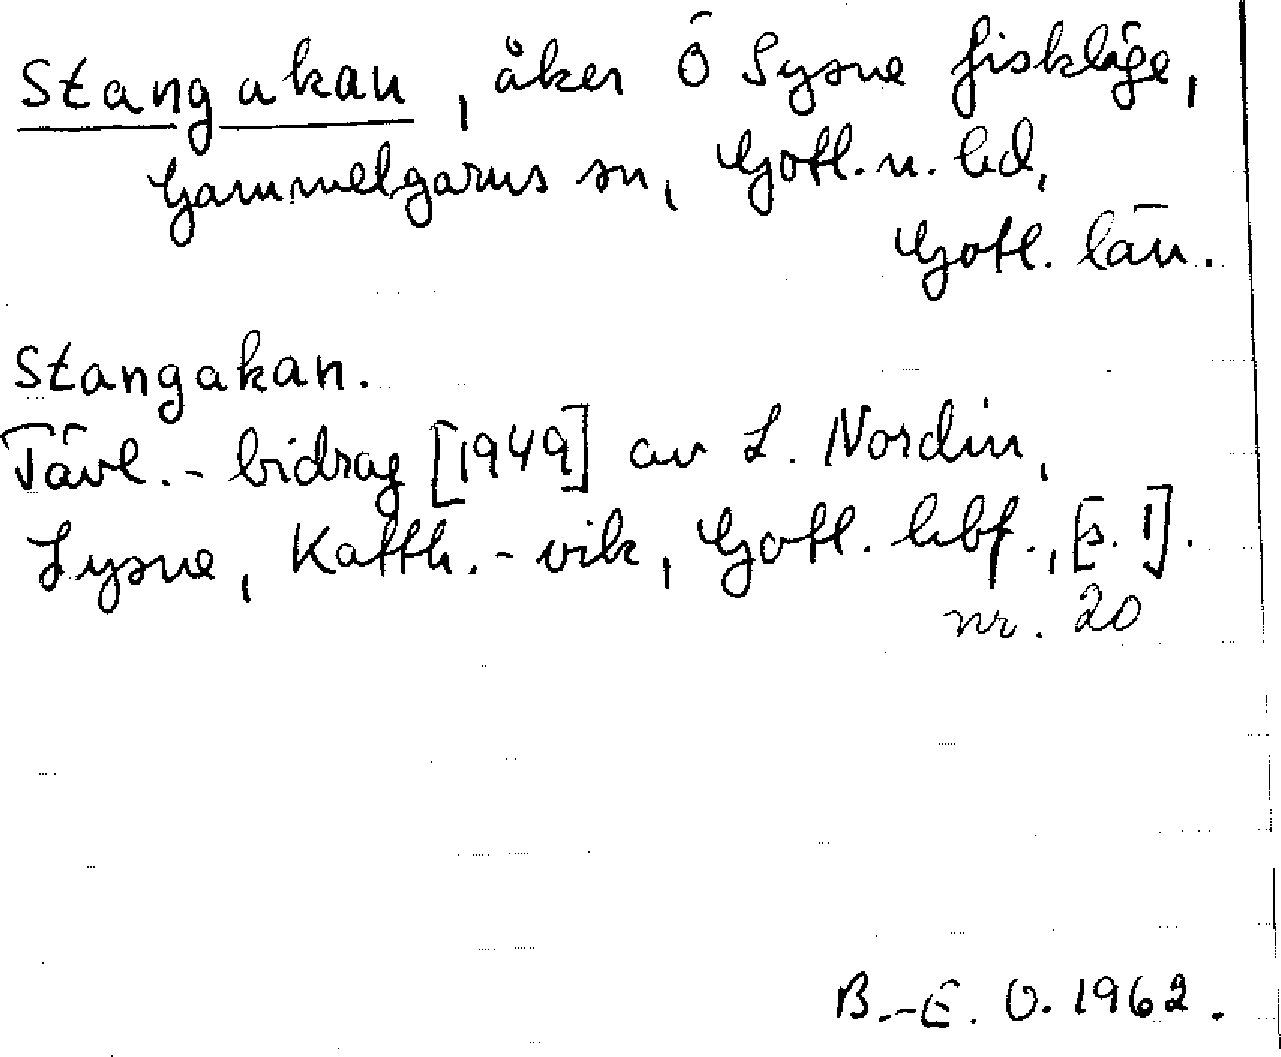 Stangakan, åker Ö Sysne fiskläge,
Gammelgarns sn, Gotl. n. hd,
Gotl. län.
Stangakan.
Tävl.-bidrag [1949] av L. Nordin,
Sysne, Katth.-vik, Gotl. hbf., [s. 1].
nr. 20
B.-E. O. 1962.